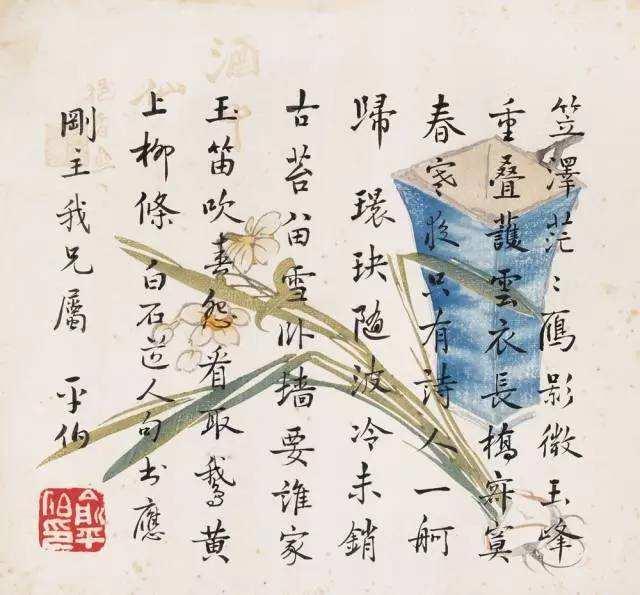 笠澤茫〻鴈影微玉峰
重叠護雲衣長橋寂寞
春寒夜只有詩人一舸
歸環玦隨波冷未銷
古苔留雪卧墻要誰家
玉笛吹春怨看取鵞黄
上柳條 白石道人句書應
剛主我兄屬 平伯
俞平伯印
酒中仙